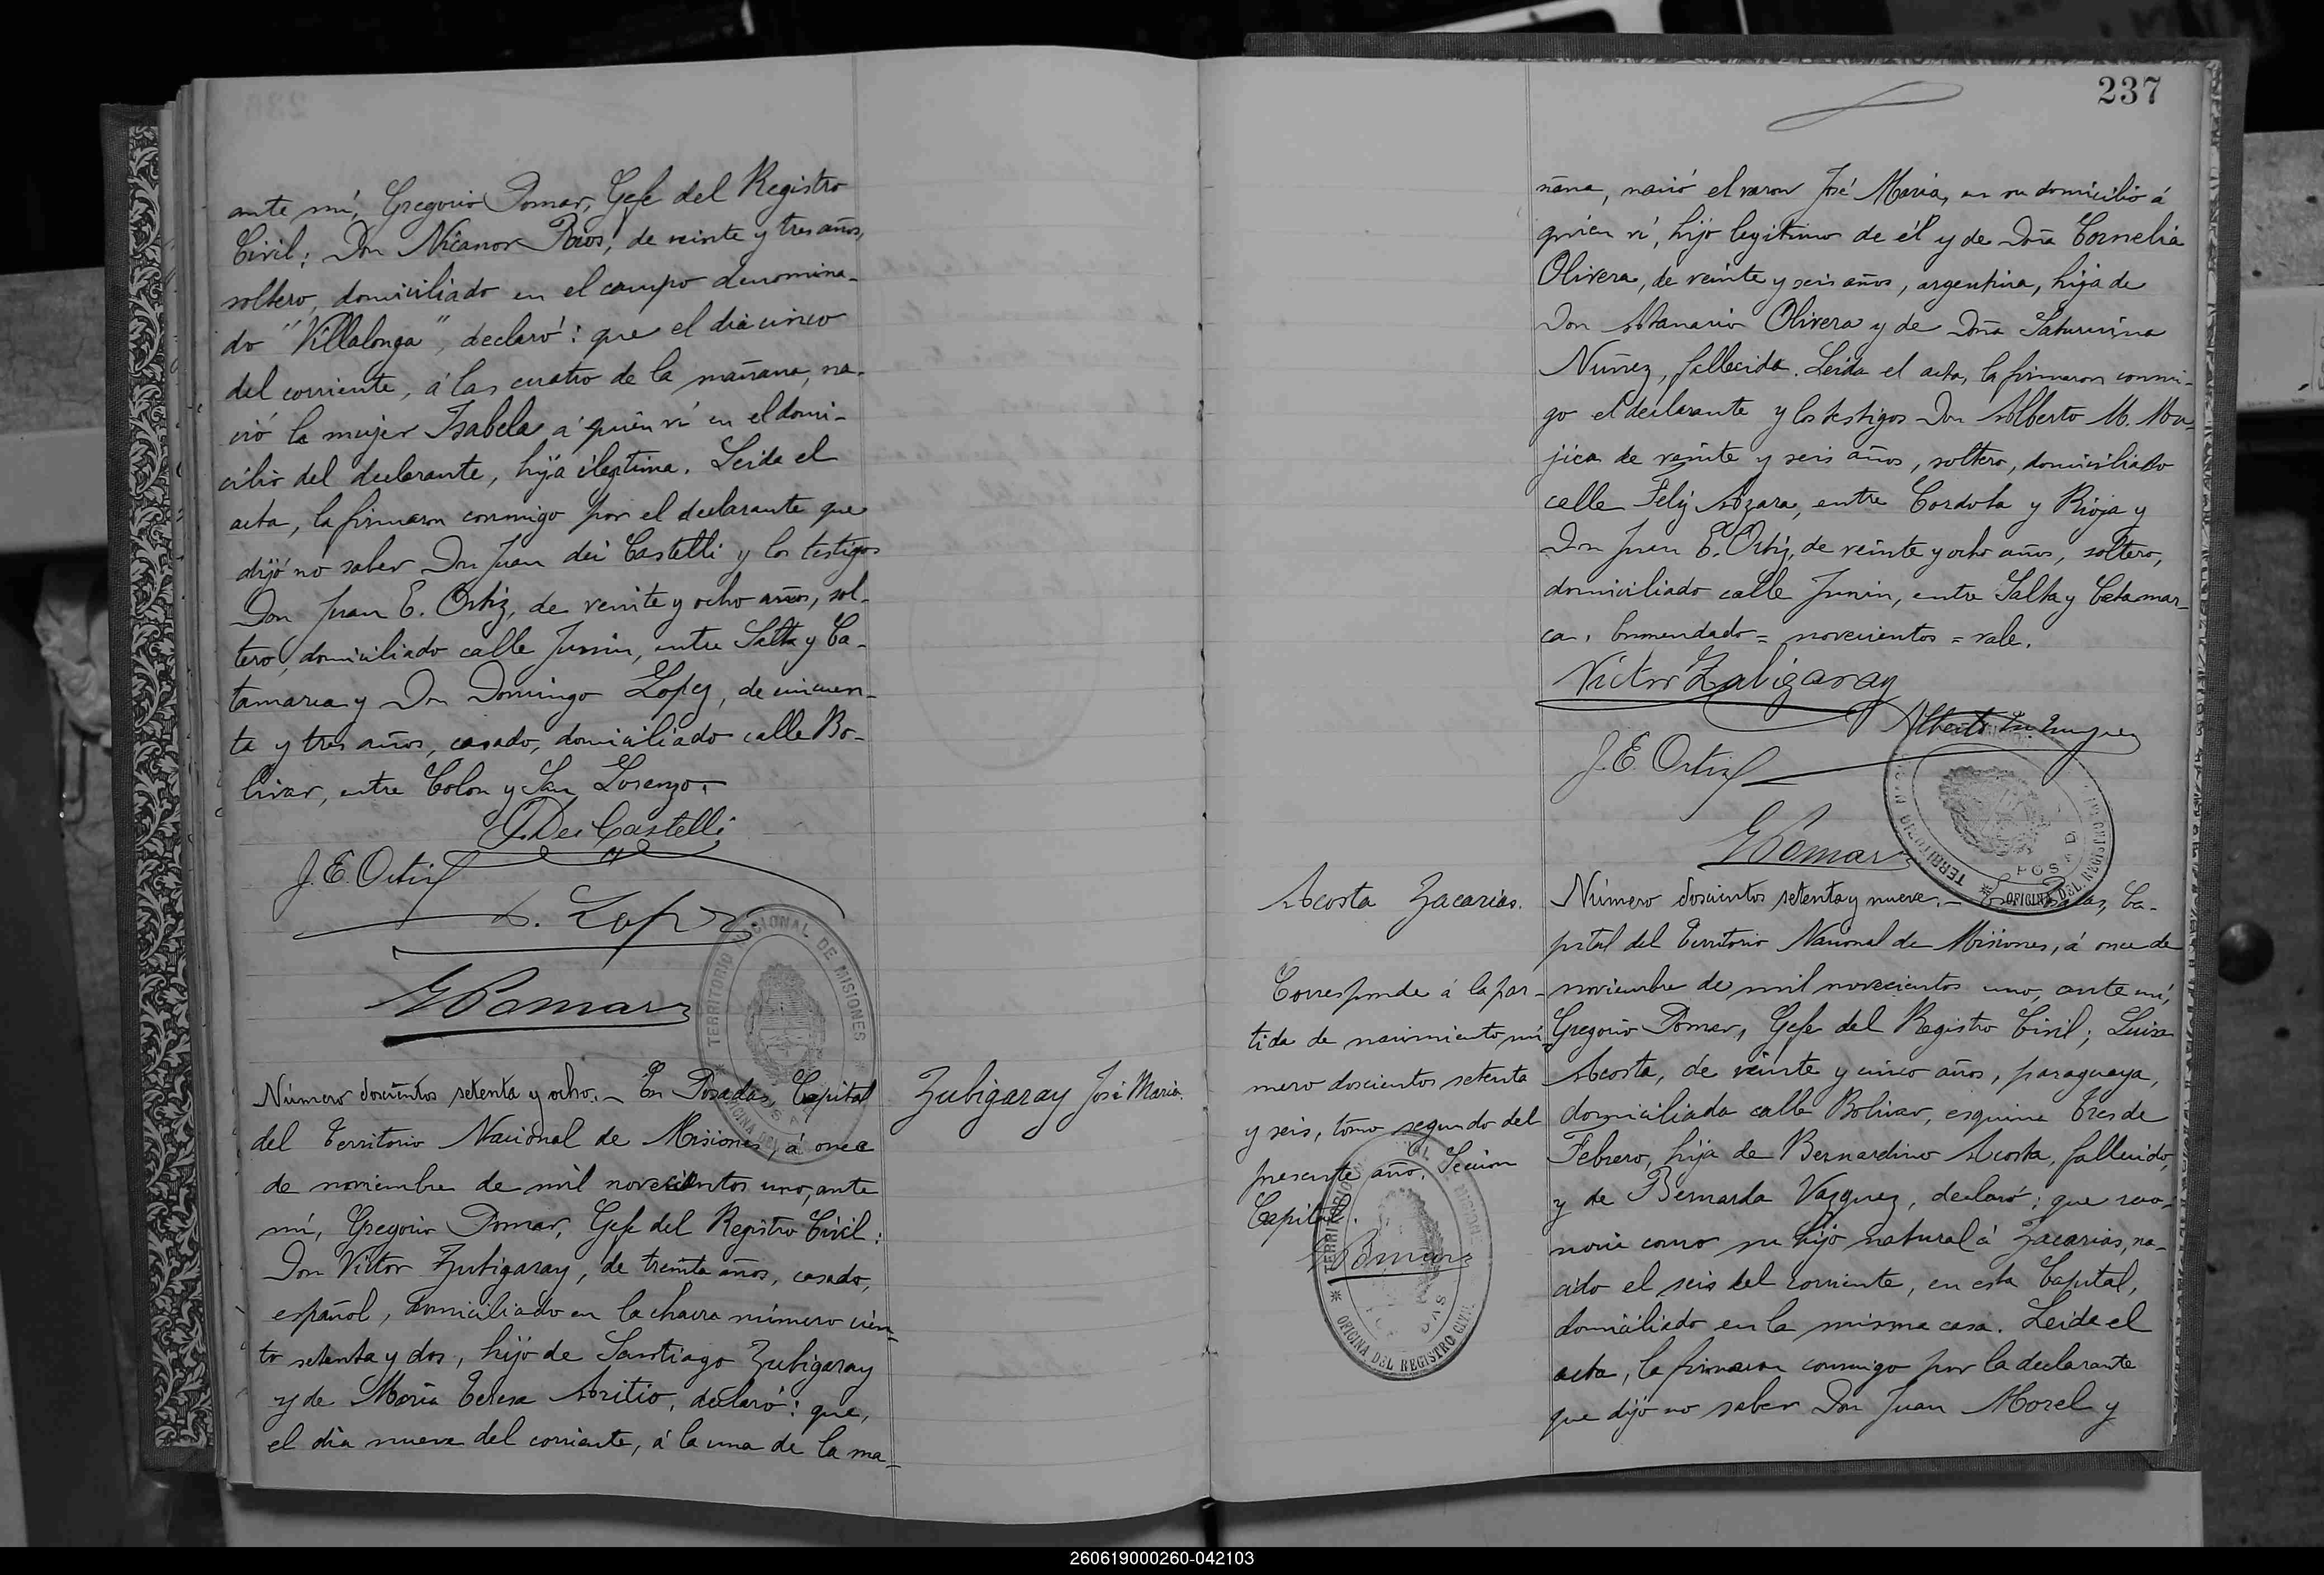 ante mí, Gregorio Pomar, Gefe del Registro
Civil: Don Nicanor Rios, de veinte y tres años,
soltero, domiciliado en el campo denomina-
do "Villalonga", declaró: que el dia cinco
del corriente, á las cuatro de la mañana, na-
ció la mujer Isabela á quien ví en el domi-
cilio del declarante, hija ilegítima. Leida el
acta, la firmaron conmigo por el declarante que
dijó no saber Don Juan dei Castelli y los testigos
Don Juan E. Ortiz, de veinte y ocho años, sol-
tero, domiciliado calle Junin, entre Salta y Ca-
tamarca y Don Domingo Lopez, de cincuen-
ta y tres años, casado, domiciliado calle Bo-
livar, entre Colon y San Lorenzo.
J. Dei Castelli
J. E. Ortiz
D. Lopez
G Pomar
TERRITORIO NACIONAL DE MISIONES
Número doscientos setenta y ocho. - En Posadas, Capital
del Territorio Nacional de Misiones, á once
de noviembre de mil novecientos uno, ante
mí, Gregorio Pomar, Gefe del Registro Civil:
Don Victor Zubigaray, de treinta años, casado,
español, domiciliado en la chacra número cien-
to setenta y dos, hijo de Santiago Zubigaray
y de Maria Teresa Aritio, declaró: que,
el dia nueve del corriente, á la una de la ma-
Zubigaray José Maria.
237
ñana, nació el varon José Maria, en su domicilio á
quien ví, hijo legítimo de él y de Doña Cornelia
Olivera, de veinte y seis años, argentina, hija de
Don Atanacio Olivera y de Doña Saturnina
Nuñez, fallecida. Leida el acta, la firmaron conmi-
go el declarante y los testigos Don Alberto M. Mu-
jica de veinte y seis años, soltero, domiciliado
calle Feliz Azara, entre Cordoba y Rioja y
Don Juan E. Ortiz, de veinte y ocho años, soltero,
domiciliado calle Junin, entre Salta y Catamar-
ca. Enmendado = novecientos = vale.
Victor Zubigaray
Alberto
J. E. Ortiz
G Pomar
OFICINA DEL REGISTRO
Acosta Zacarías.
Corresponde á la par-
tida de nacimiento nú-
mero doscientos setenta
y seis, tomo segundo del
presente año. Seccion
Capital.
G Pomar
TERRITORIO
OFICINA DEL REGISTRO CIVIL
Número doscientos setenta y nueve. - En Posadas, Ca-
pital del Territorio Nacional de Misiones, á once de
noviembre de mil novecientos uno, ante mí,
Gregorio Pomar, Gefe del Registro Civil; Luisa
Acosta, de veinte y cinco años, paraguaya,
domiciliada calle Bolivar, esquina Tres de
Febrero, hija de Bernardino Acosta, fallecido,
y de Bernarda Vazquez, declaró: que reco-
noce como su hijo natural á Zacarias, na-
cido el seis del corriente, en esta Capital,
domiciliado en la misma casa. Leida el
acta, la firmaron conmigo por la declarante
que dijó no saber Don Juan Morel y
260619000260-042103